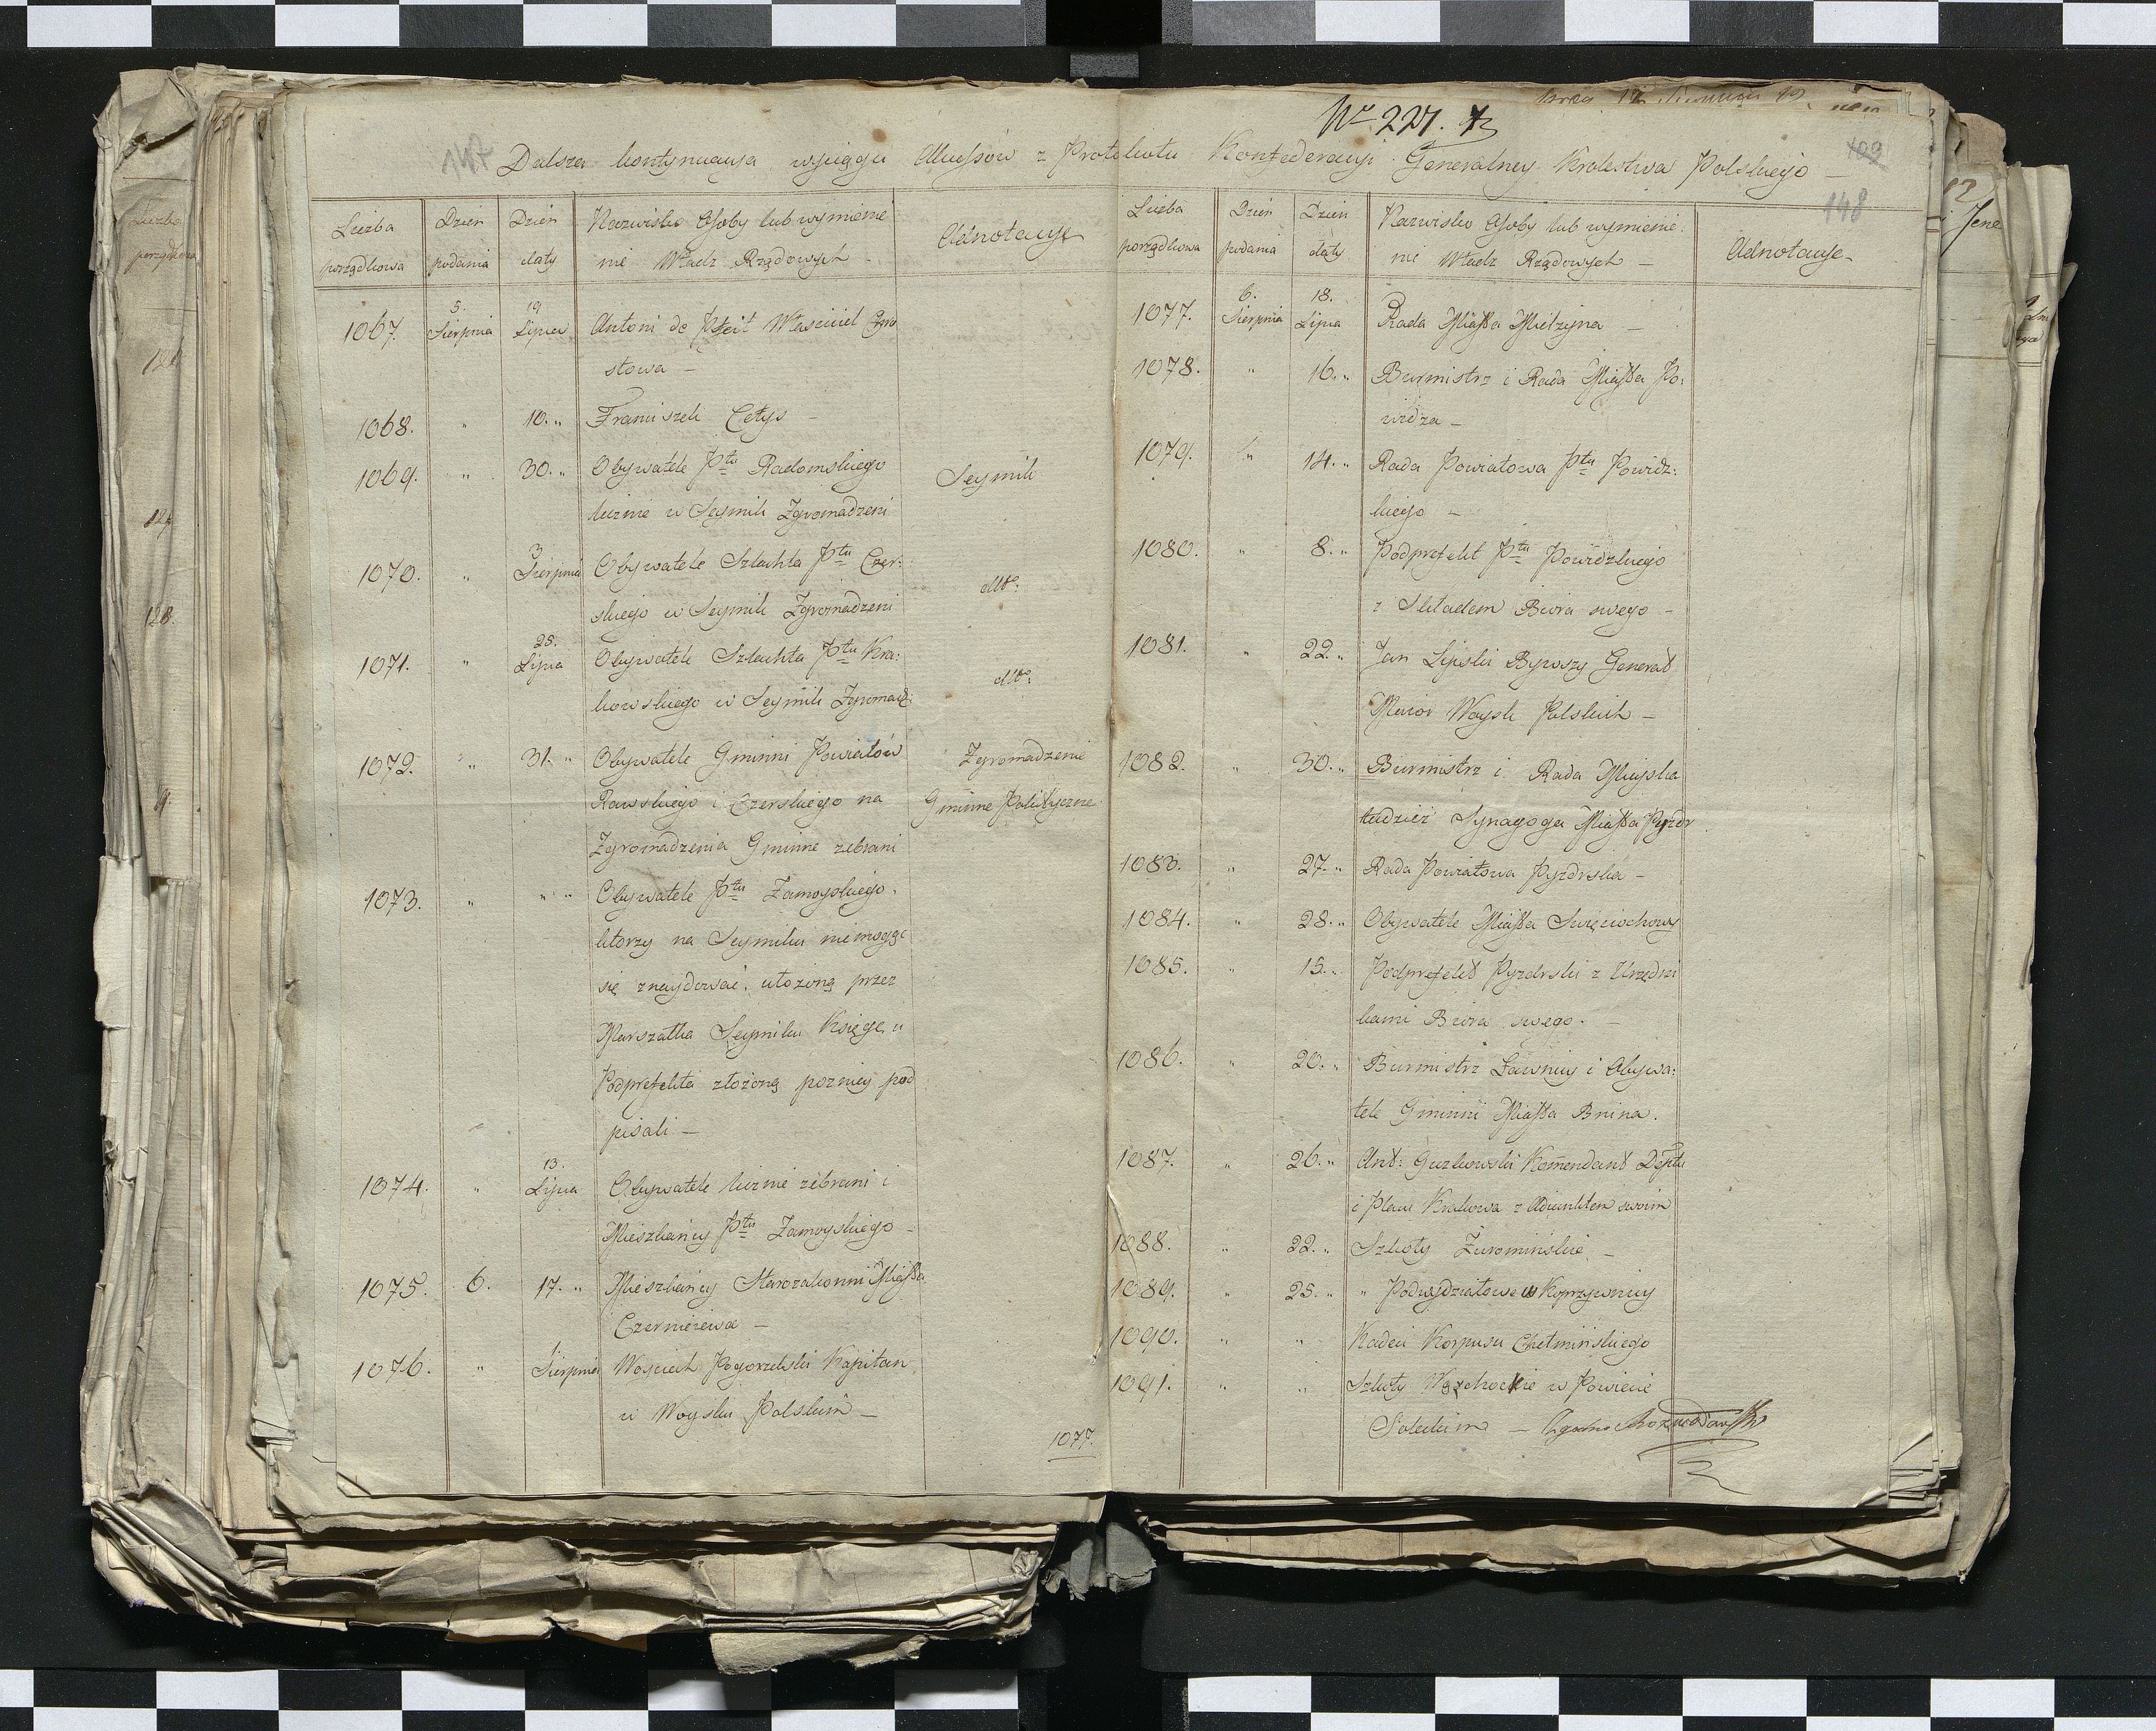 Nro 227.
147 Dalsza kontynuacya wyciągu Akcesów z Protokołu Konfederacyi Generalney Krolestwa Polskiego —
109
148
Liczba porządkowa | Dzień podania | Dzień daty | Nazwisko Osoby lub wymienie
nie Władz Rządowych — | Adnotacye
1067. | 5. Sierpnia | 19 Lipca | Antoni de Właściciel
stowa —
1068. | „ | 10. „ | Franciszek Cetys —
1069. | „ | 30. „ | Obywatele Ptu Radomskiego | Seymik
licznie w Seymik Zgromadzeni
1070. | „ | 3 Sierpnia | Obywatele Szlachta Ptu Czer: | dtto:
skiego w Seymik Zgromadzeni
1071. | „ | 25. Lipca | Obywatele Szlachta Ptu Kra: | dtto:
kowskiego w Seymik Zgromadz:
1072. | „ | 31. „ | Obywatele Gminni Powiatów | Zgromadzenie
Rawskiego i Czerskiego na | Gminne Polityczne
Zgromadzenia Gminne zebrani
1073. | „ | „ „ | Obywatele Ptu Zamoyskiego.
ktorzy na Seymiku niemogąc
się znaydować, ułożoną przez
Marszałka Seymiku Księgę u
Podprefekta złożoną pozniey pod
pisali —
1074. | „ | 13. Lipca | Obywatele licznie zebrani i
Mieszkańcy Ptu Zamoyskiego —
1075. | 6. | 17. „ | Mieszkańcy Starozakonni Miasta
Czerniejewa —
1076. | „ | Sierpnia | Woyciech Pogorzelski Kapitan
w Woysku Polskim —
1077.
Liczba porządkowa | Dzień podania | Dzień daty | Nazwisko Osoby lub wymienie:
nie Władz Rządowych — | Adnotacye —
1077. | 6. Sierpnia | 18. Lipca | Rada Miasta Mielzyna —
1078. | „ | 16. „ | Burmistrz i Rada Miasta Po:
widza —
1079. | „ | 14. „ | Rada Powiatowa Ptu Powidz:
kiego —
1080. | „ | 8. „ | Podprefekt Ptu Powidzkiego
z Składem Biura swego —
1081. | „ | 22. „ | Jan Lipski Bywszy Generał
Maior Woysk Polskich —
1082. | „ | 30. „ | Burmistrz i Rada Mieyska
tudzież Synagoga Miasta Pyzdr
1083. | „ | 27. „ | Rada Powiatowa Pyzdrska —
1084. | „ | 28. „ | Obywatele Miasta Swięciochowy
1085. | „ | 15. „ | Podprefekt Pyzdrski z Urzędni
kami Biura swego. —
1086. | „ | 20. „ | Burmistrz Ławnicy i Obywa:
tele Gminni Miasta Bnina.
1087. | „ | 26. „ | Ant: Guzkowski Komendant Dptu
i Placu Krakowa z Adiunktem swoim
1088. | „ | 22. „ | Szkoły Żuromińskie —
1089. | „ | 25. „ | „ Podwydziałowe w Koprzywnicy
1090. | „ | „ | Kadeci Korpusu Chełmińskiego
1091. | „ | „ | Szkoły Wąchockie w Powiecie
Soleckim —